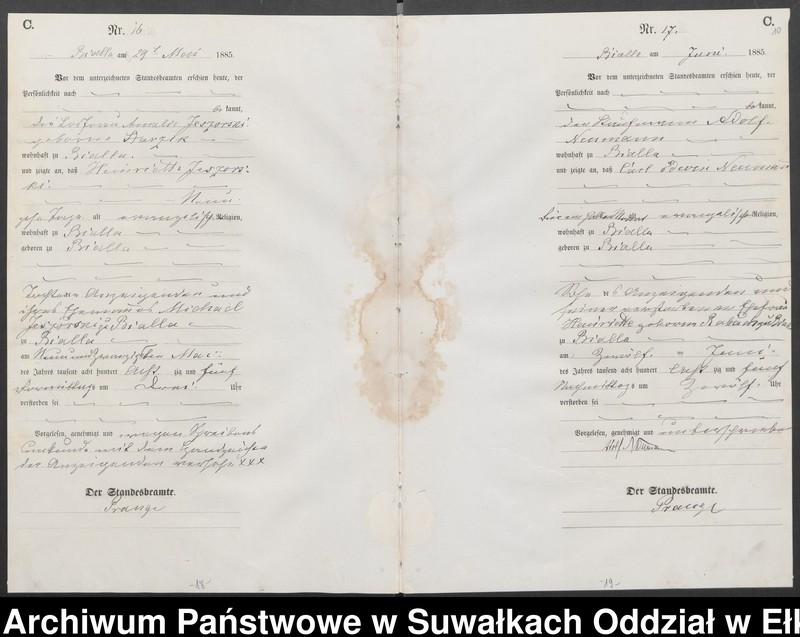 C.
Nr. 16
Bialla am 29t Mai 1885.
Vor dem unterzeichneten Standesbeamten erschien heute, der
Persönlichkeit nach
be kannt,
geborene
wohnhaft zu Bialla.
und zeigte an, daß Henriette
Neun
Tage alt evangelischer Religion,
wohnhaft zu Bialla
geboren zu Bialla
Tochter Anzeigenden und
ihres Ehemannes Michael
zu Bialla
zu Bialla
am Neunundzwanzigsten Mai
des Jahres tausend acht hundert acht zig und fünf
Vormittags um Drei Uhr
verstorben sei
Vorgelesen, genehmigt und wegen Schreibens
mit dem Handzeichen
der Anzeigenden versehen XXX
Der Standesbeamte.
Prange
-18-
C.
10
Nr. 17.
Bialla am Juni 1885.
Vor dem unterzeichneten Standesbeamten erschien heute, der
Persönlichkeit nach
be kannt,
der Kaufmann Adolf
Neumann
wohnhaft zu Bialla
und zeigte an, daß Carl Edwin Neumann
evangelischer Religion,
wohnhaft zu Bialla
geboren zu Bialla
Sohn des Anzeigenden und
seiner Ehefrau
Henriette geborene
zu Bialla
am Zwölf Juni
des Jahres tausend acht hundert acht zig und fünf
Nachmittags um Zwölf Uhr
verstorben sei
Vorgelesen, genehmigt und unterschrieben
Adolf Neumann
Der Standesbeamte.
Prange
-19-
Archiwum Państwowe w Suwałkach Oddział w Ełk